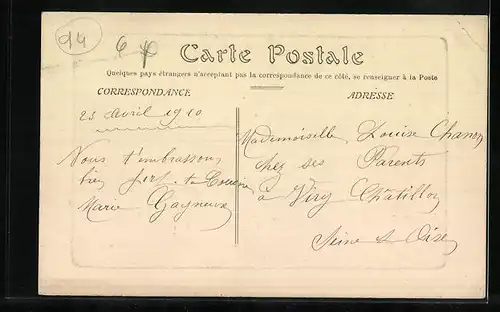 94
6
Carte Postale
Quelques pays étrangers n'acceptant pas la correspondance de ce côté, se renseigner à la Poste
CORRESPONDANCE
ADRESSE
25 Avril 1910
Nous t'embrassons
bien fort ta Cousine
Marie Gagneux
Mademoiselle Louise Chanon
chez ses Parents
à Viry Châtillon
Seine & Oise